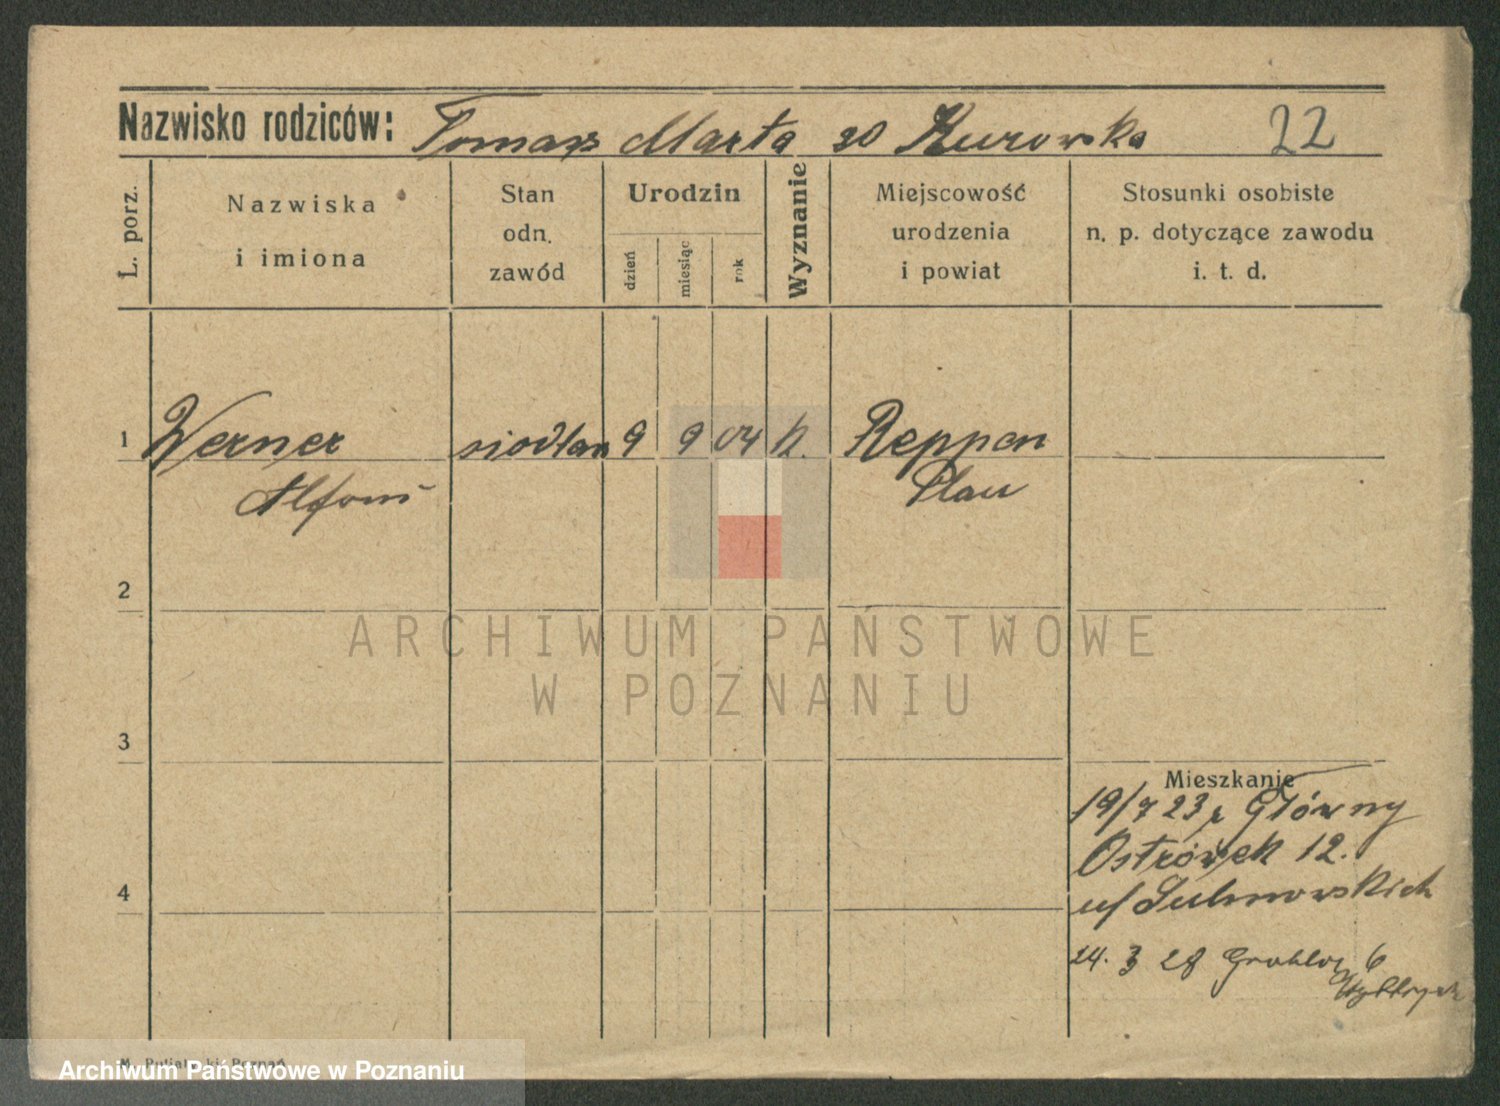 Nazwisko rodziców: Tomasz Marta zd Kurowska 22
L. porz.
Nazwiska
i imiona
Stan
odn.
zawód
Urodzin
dzień
miesiąc
rok
Wyznanie
Miejscowość
urodzenia
i powiat
Stosunki osobiste
n. p. dotyczące zawodu
i. t. d.
1 Werner siodlarz 9 9 04 k. Reppen
Alfons
2
ARCHIWUM PAŃSTWOWE
W POZNANIU
3
Mieszkanie
19/7 23 r Główny
Ostrówek 12.
4
24. 3 28 6
M. Poznań
Archiwum Państwowe w Poznaniu